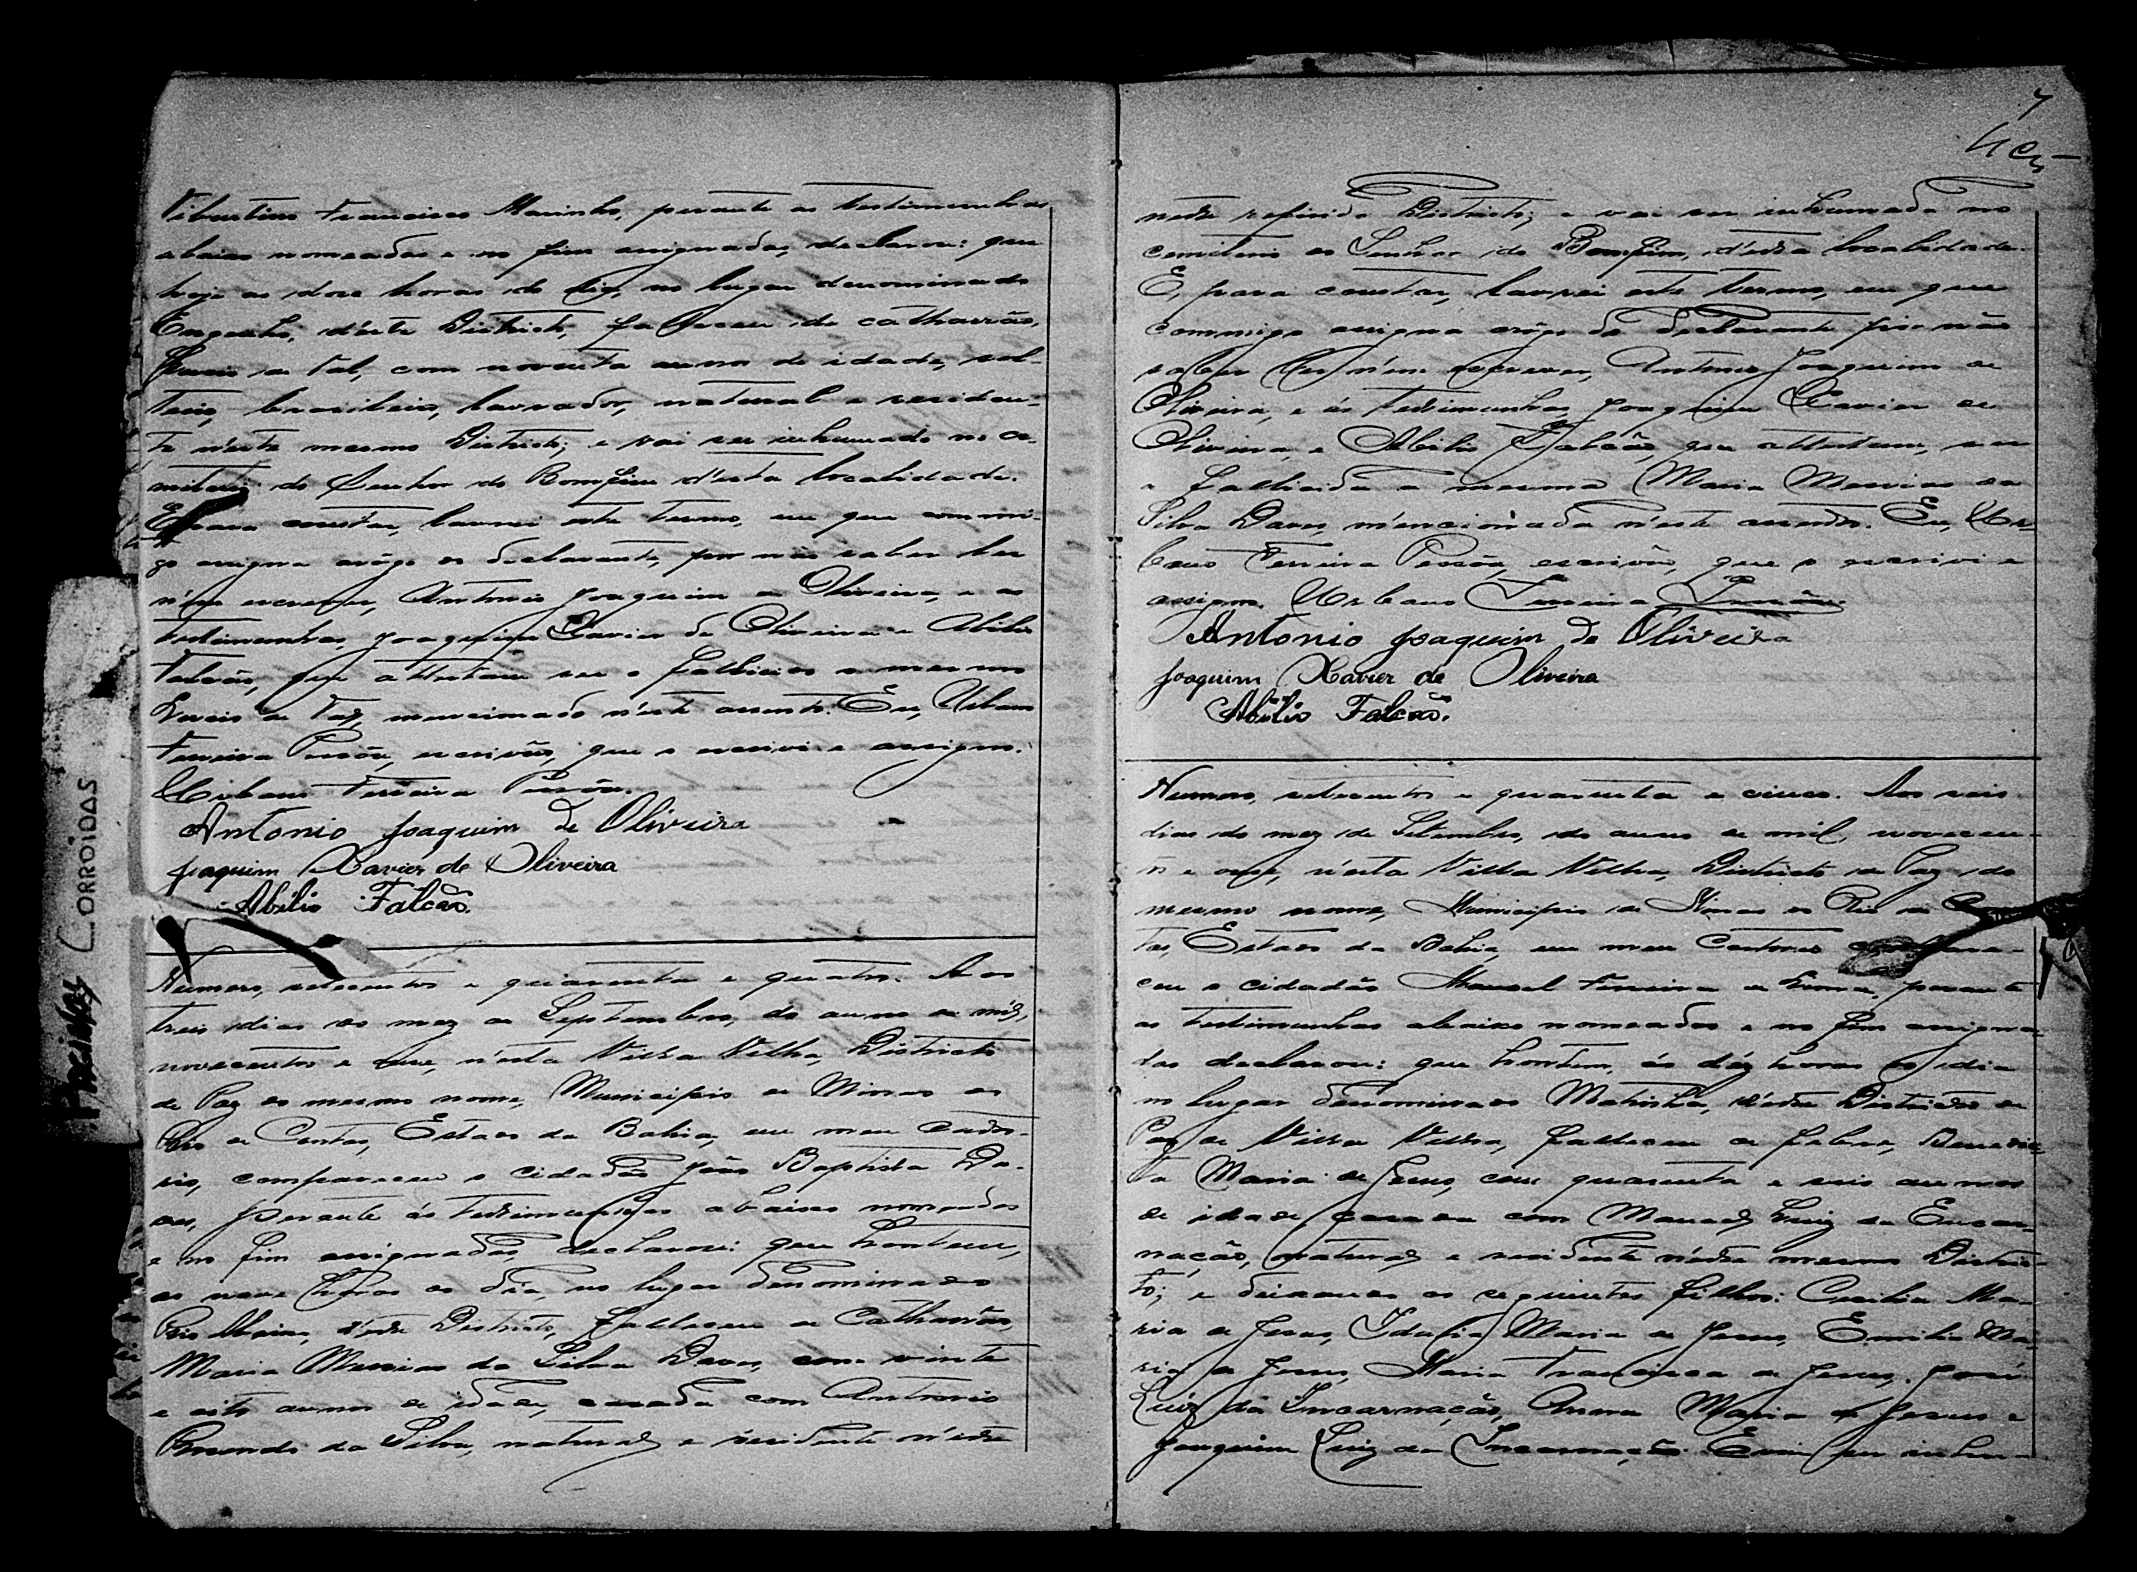 Tiburtino Francisco Marinho, perante as testimunhas
abaixo nomeadas e no fim assignadas, declarou: que
hoje as doze horas do dia, no lugar denominado
Engenho, d'este Districto, falleceu de catharrão,
com noventa annos de idade, sol-
teiro, brasileiro, lavrador, natural e residen-
te n'este mesmo Districto; e vai ser inhumado no ce-
miterio do Senhor do Bomfim d'esta localidade.
E, para constar, lavrei este termo, em que commi-
go assigna arôgo do declarante, por não saber ler
n'em escrever, Antonio Joaquim de Oliveira, e as
testimunhas, Joaquim Xavier de Oliveira e Abilio
Falcão, que attestam ser o fallecido o mesmo
mencionado n'este assento. Eu, Urbano
Ferreira Pessôa, escrivão, que o escrivi e assigno.
Urbano Ferreira Pessôa.
Antonio Joaquim de Oliveira
Joaquim Xavier de Oliveira
Abilio Falcão.
Numero, setecentos e quarenta e quatro. Aos
tres dias do mez de Septembro, do anno de mil,
novecentos e onze, n'esta Villa Velha, Districto
de Paz do mesmo nome, Municipio de Minas do
Rio de Contas, Estado da Bahia, em meu Carto-
rio, compareceu o cidadão João Baptista Da-
perante ás testimunhas abaixo nomeadas
e no fim assignadas, declarou: que hontem,
as nove horas do dia, no lugar denominado
Rio Abaixo, d'este Districto, falleceu de Catharrão,
Maria Messias da Silva Daves, com vinte
e oito annos de idade, casada com Antonio
Rosendo da Silva, natural e residente n'este
7
neste referido Districto; e vai ser inhumada no
cemiterio do Senhor do Bomfim, d'esta localidade.
E, para constar, lavrei este termo, em que
commigo assigna arôgo do declarante por não
saber ler n'em escrever, Antonio Joaquim de
Oliveira, e ás testimunhas, Joaquim Xavier de
Oliveira e Abilio Falcão, que attestam, ser
a fallecida a mesma Maria Messias da
Silva Daves, mencionada n'este assento. Eu, Ur-
bano Ferreira Pessôa, escrivão, que o escrivi e
assigno. Urbano Ferreira Pessôa.
Antonio Joaquim de Oliveira
Joaquim Xavier de Oliveira
Abilio Falcão.
Numero, setecentos e quarenta e cinco. Aos seis
dias do mez de Setembro, do anno de mil, novecen-
tos e onze, n'esta Villa Velha, Districto de Paz do
mesmo nome, Municipio de Minas do Rio de Con-
tas, Estado da Bahia, em meu Cartorio compare-
ceu o cidadão Manoel Ferreira de perante
as testimunhas abaixo nomeadas e no fim assigna-
das declarou: que hontem, ás déz horas do dia
no lugar denominado Matinha, d'este Districto de
Paz de Villa Velha, falleceu de febre, Benedic-
ta Maria de Jesus, com quarenta e seis annos
de idade casada com Manoel Luiz da Encar-
nação, natural e residente n'este mesmo Distric-
to; e deixando os seguintes filhos: Cecilia Ma-
ria de Jesus, Idalia Maria de Jesus, Emilia Ma-
ria de Jesus, Maria Francisca de Jesus, José
Luiz da Incarnação, Anna Maria de Jesus e
Joaquim Luiz da Incarnação. E vai ser inhu-
PAGINAS CORROIDAS